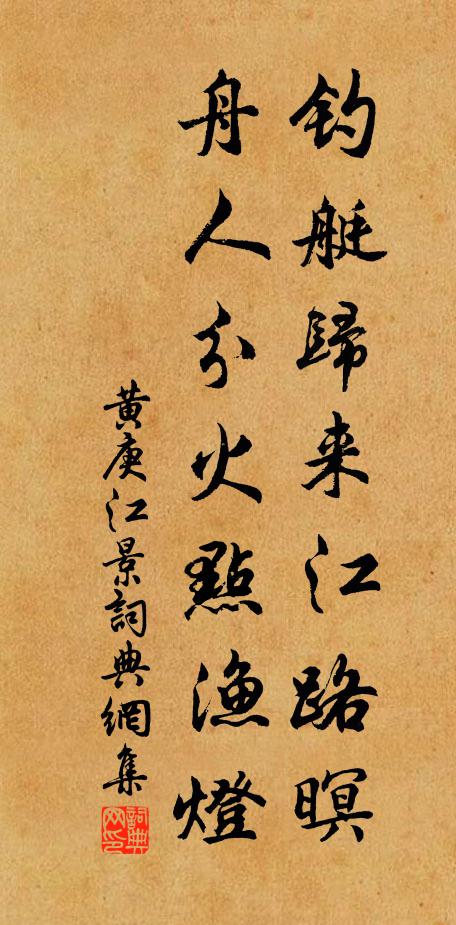 釣艇歸来江路暝
舟人分火點漁燈
黃庚江景詞典網集
詞典网印